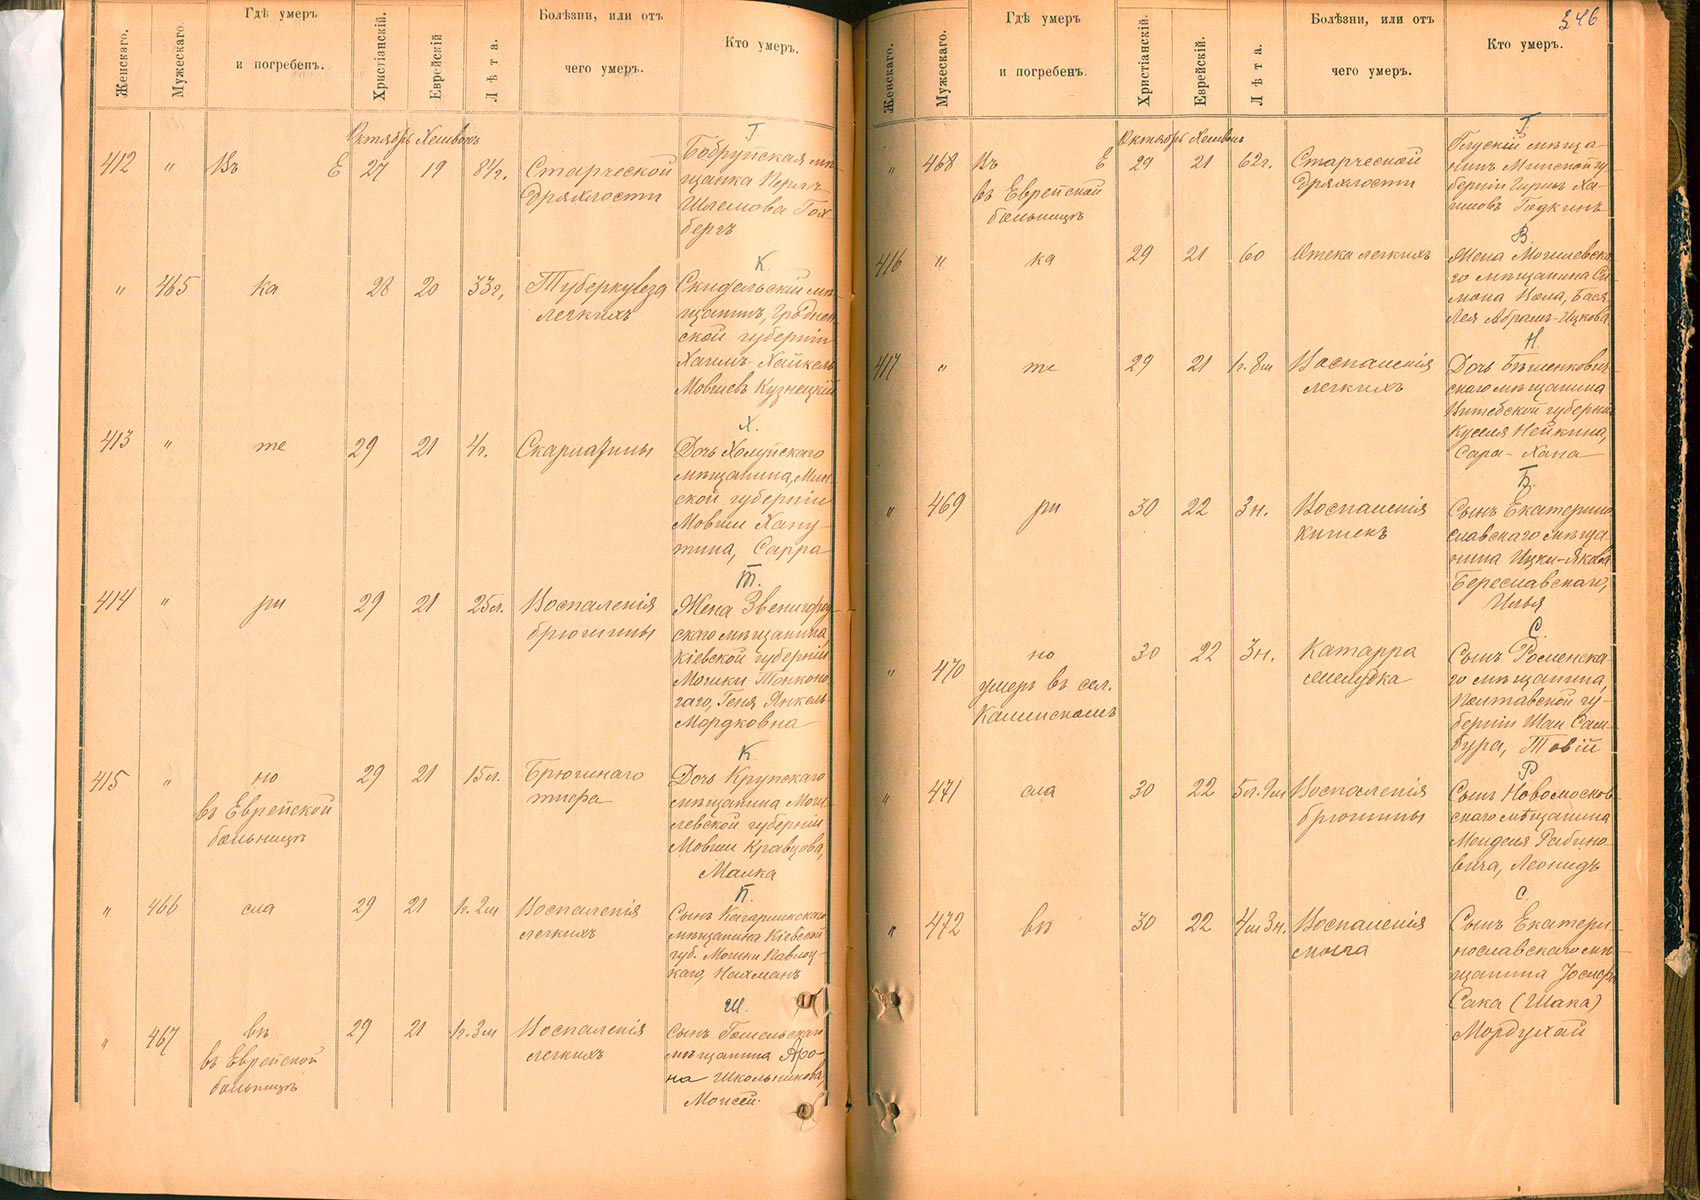 Женскаго.
Мужескаго
Гдѣ умеръ
и погребенъ.
Христіанскій.
Еврейскій
Лѣта.
Болѣзни, или отъ
чего умеръ.
Кто умеръ.
Октябрь Хешвонъ
412 " Въ Е 27 19 84г. Старческой
дряхлости
Г.
Бобруйская мѣ-
щанка Перля
Шлемова Гох-
бергъ
" 465 ка 28 20 33г. Туберкулеза
легкихъ
К.
Скидельскій мѣ-
щанинъ, Гроднен
ской губерніи
Хаимъ-Хайкель
Мовшевъ Кузнецкій
413 " те 29 21 4г. Скарлатины
Х.
Дочь Холуйскаго
мѣщанина, Мин-
ской губерніи
Мовши Хану-
тина, Сарра
414 " ри 29 21 25л. Воспаленія
брюшины
Т.
Жена Звенигород-
скаго мѣщанина,
Кіевской губерніи
Мошки Тонконо-
гаго, Геня Янкель-
Мордковна
415 " но 29 21 15л. Брюшнаго
тифа
въ Еврейской
больницѣ
К
Дочь Крупскаго
мѣщанина Моги-
левской губерніи
Мовши Кравцова,
Малка
" 466 сла 29 21 1г. 2м Воспаленія
легкихъ
П.
Сынъ Кагарлыкскаго
мѣщанина Кіевской
губ. Мошки Павлоц-
каго, Нахманъ
" 467 вѣ 29 21 1г. 3м Воспаленія
легкихъ
въ Еврейской
больницѣ
Ш.
Сынъ Гомельскаго
мѣщанина Аро-
на Школьникова,
Моисей.
346
Женскаго.
Мужескаго.
Гдѣ умеръ
и погребенъ.
Христіанскій.
Еврейскій.
Лѣта.
Болѣзни, или отъ
чего умеръ.
Кто умеръ.
Октябрь Хешвонъ
" 468 Въ Е 29 21 62г. Старческой
дряхлости
въ Еврейской
больницѣ
Г.
Глускій мѣща-
нинъ Минской гу-
берніи Ха-
имовъ Годкинъ
416 " ка 29 21 60 Отека легкихъ
В.
Жена Могилевска-
го мѣщанина Си-
мона Вола, Бася-
Лея Абрамъ-Ицкова
417 " те 29 21 1г. 8м Воспаленія
легкихъ
Н.
Дочь Бѣшенкович-
скаго мѣщанина
Витебской губерніи
Куселя Нейкина,
Сара-Хана
" 469 ри 30 22 3н. Воспаленія
кишекъ
Б.
Сынъ Екатерино
славскаго мѣща-
нина Ицки-Якова
Береславскаго,
Илья
" 470 но 30 22 3н. Катарра
желудка
умеръ въ сел.
Каменскомъ
С.
Сынъ Роменска-
го мѣщанина,
Полтавской гу-
берніи Шаи Сам-
бура, Товій
" 471 сла 30 22 5л. 9м Воспаленія
брюшины
Р
Сынъ Новомосков-
скаго мѣщанина
Менделя Рабино-
вича, Леонидъ
" 472 вѣ 30 22 4м 3н. Воспаленія
мозга
С.
Сынъ Екатери-
нославскаго мѣ-
щанина Іосифа
Сака (Шака)
Мордухай